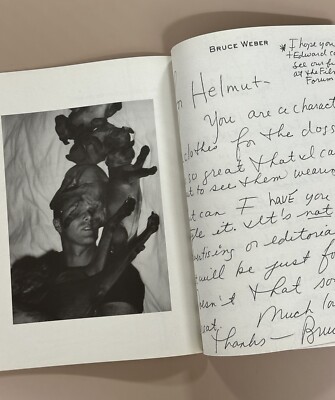 BRUCE WEBER
* I hope you
Edward c
see our f
at the Film
Forum
Helmut –
You are a charact
clothes for the dogs
so great that I ca
to see them wearin
can I have you
le it. It's not
ertising or editoria
will be just fo
esn't that so
eat. Much lo
thanks – Bruc